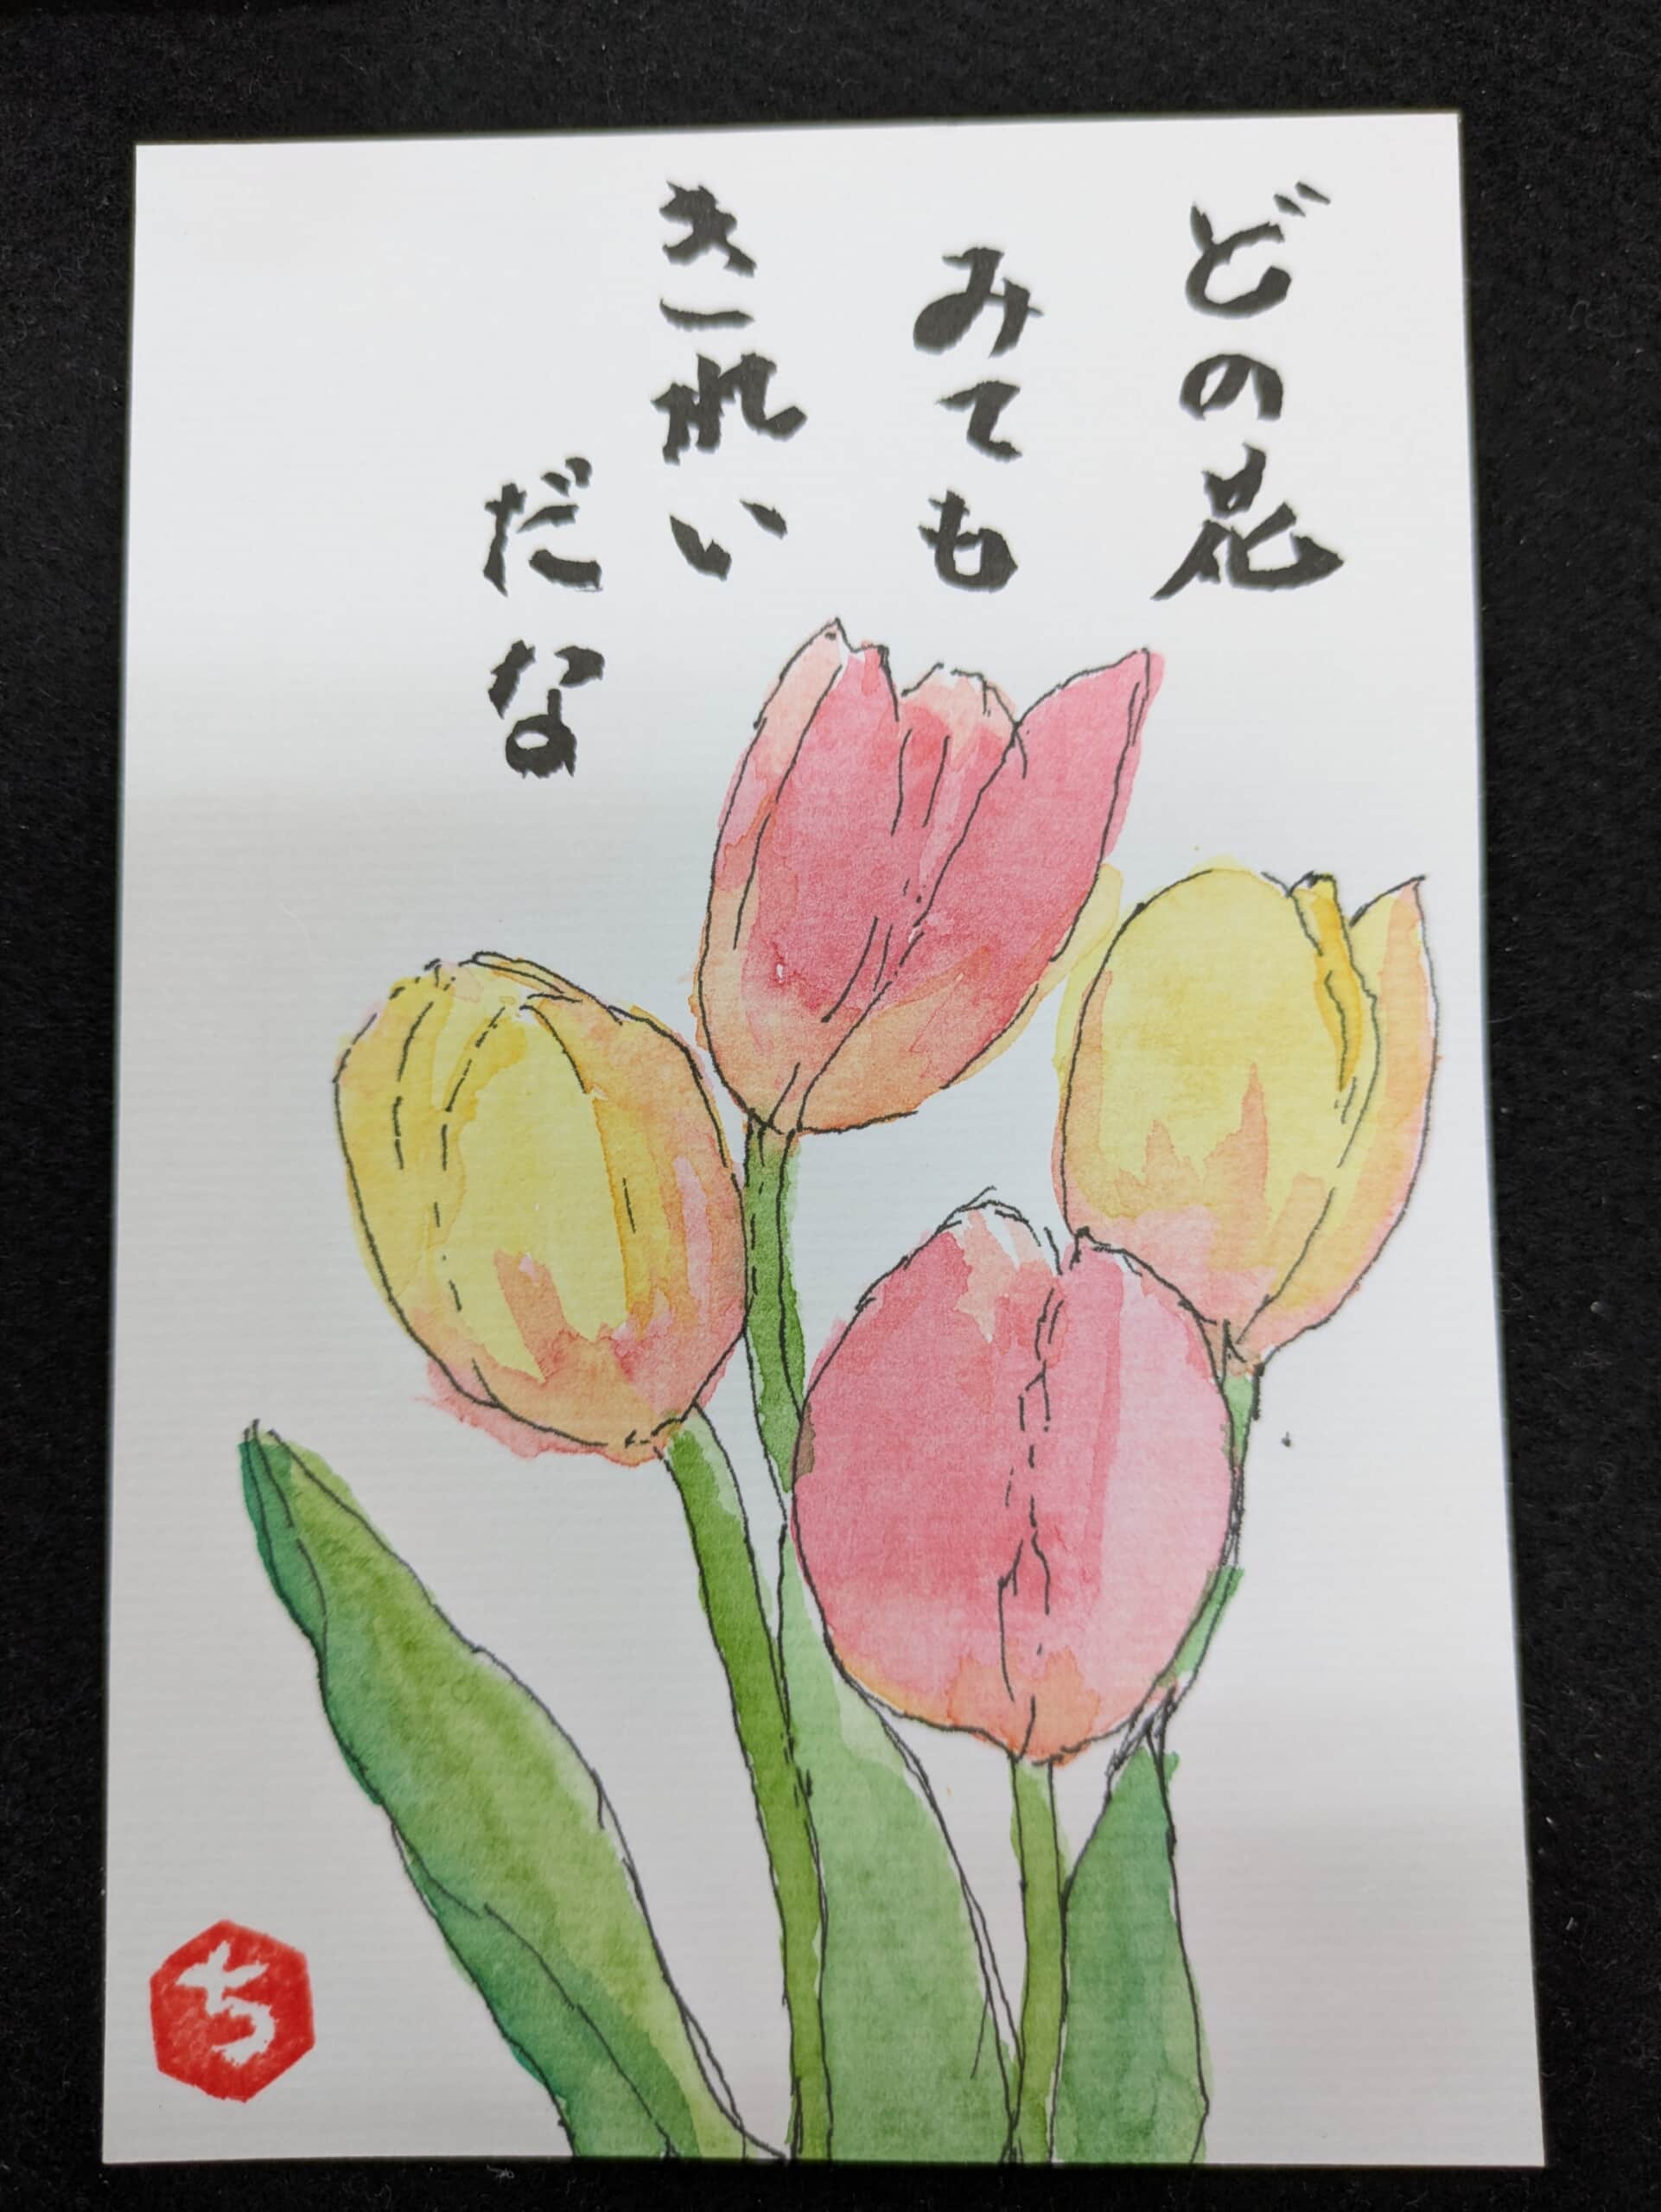 どの花
みても
きれい
だな
ち